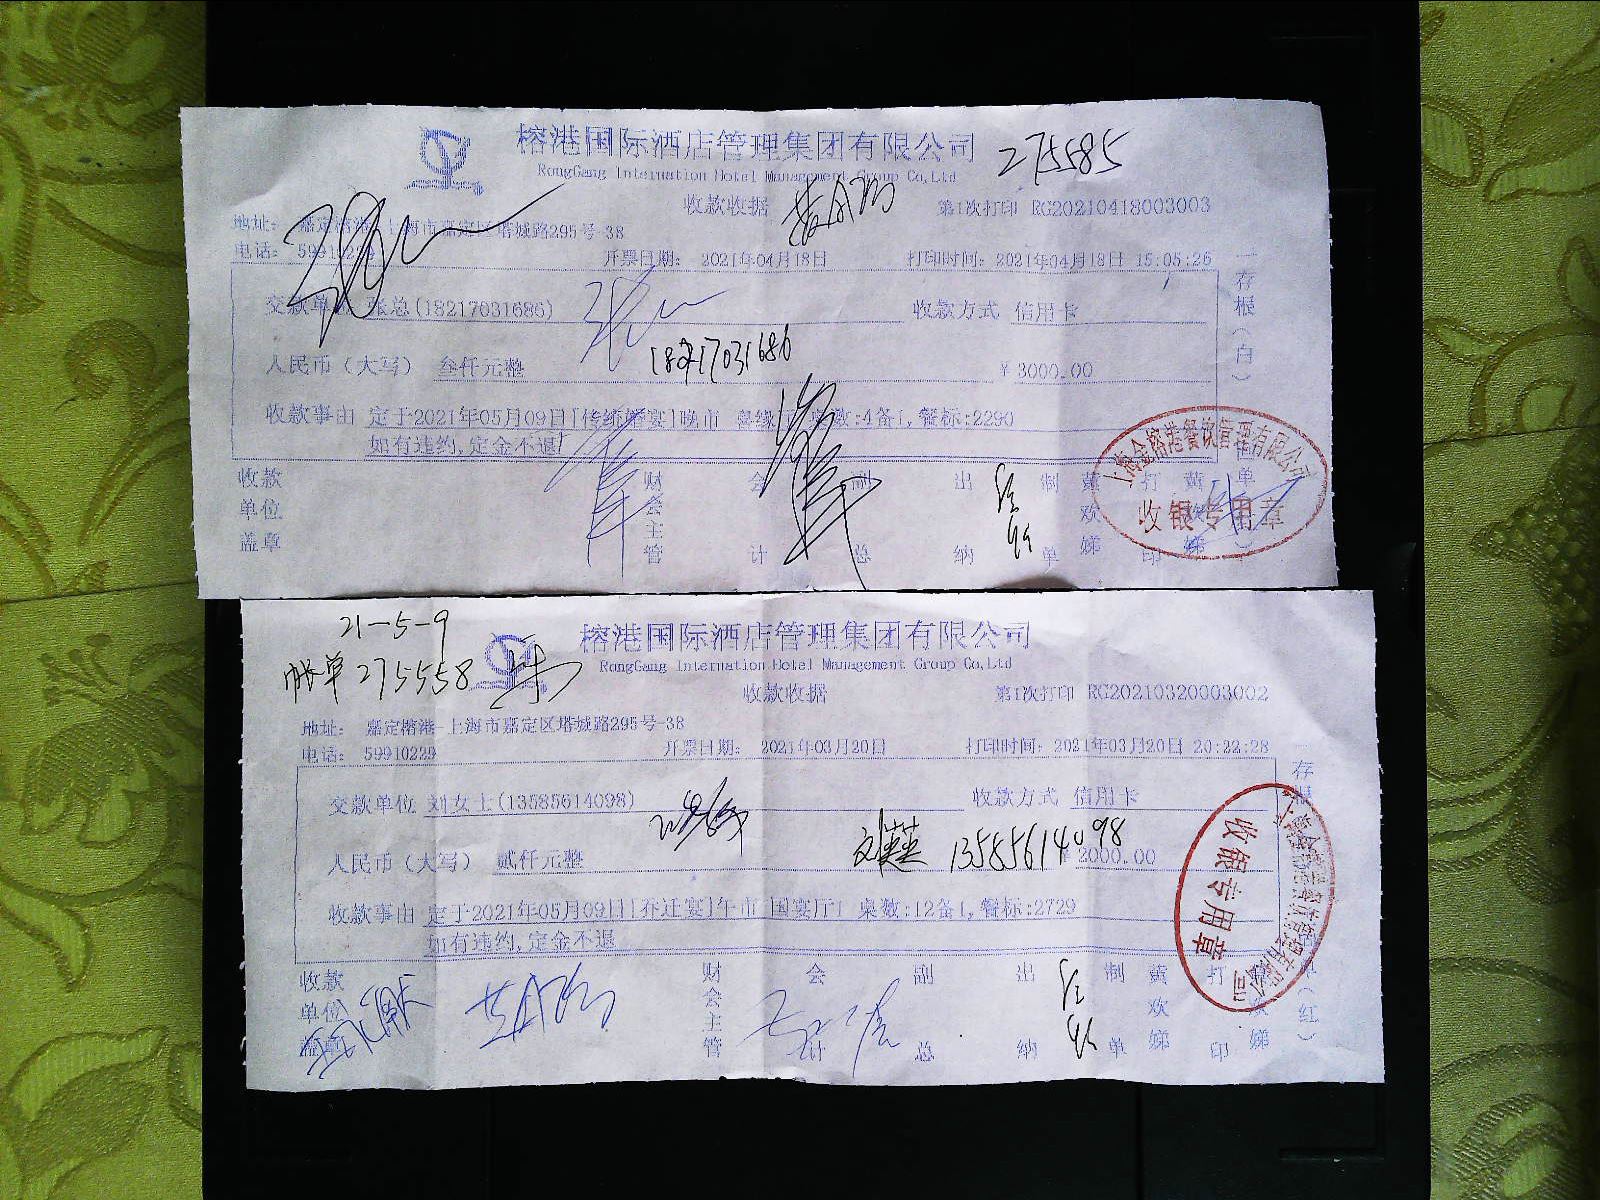 榕港国际酒店管理集团有限公司
275585
RongGang Internation Hotel Management Group Co,Ltd
收款收据
第1次打印 RG20210418003003
地址: 嘉定榕港-上海市嘉定区塔城路295号-38
电话: 59910229
开票日期: 2021年04月18日
打印时间: 2021年04月18日 15:05:26
交款单位 张总(18217031686)
收款方式 信用卡
18217031686
人民币（大写） 叁仟元整
¥ 3000.00
收款事由 定于2021年05月09日[传统婚宴]晚市 喜缘 桌数:4备1,餐标:2290
如有违约,定金不退
收款单位盖章
财会主管
会计
副总
出纳
制单
黄欢娣
打印
黄欢娣
存根(白)单
上海金榕港餐饮管理有限公司
收银专用章
21-5-9
帐单 275558
榕港国际酒店管理集团有限公司
RongGang Internation Hotel Management Group Co,Ltd
收款收据
第1次打印 RG20210320003002
地址: 嘉定榕港-上海市嘉定区塔城路295号-38
电话: 59910229
开票日期: 2021年03月20日
打印时间: 2021年03月20日 20:22:28
交款单位 刘女士(13585614098)
收款方式 信用卡
13585614098
人民币（大写） 贰仟元整
¥ 2000.00
收款事由 定于2021年05月09日[乔迁宴]午市 国宴厅1 桌数:12备1,餐标:2729
如有违约,定金不退
收款单位盖章
财会主管
会计
副总
出纳
制单
黄欢娣
打印
黄欢娣
存根
(红)
收银专用章